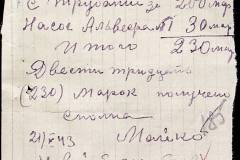 С трубами за 200 мар
Насос Альвеера 1 30 мар
Итого 230 мар
Двести тридцать
(230) Марок получено
сполна
21/X 43